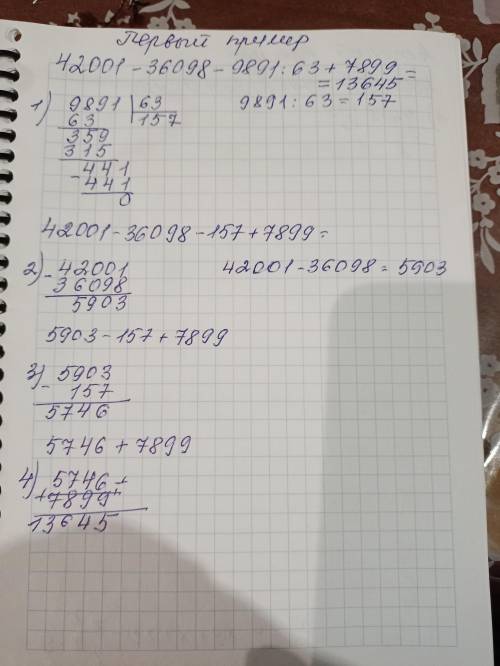 Первый пример
42001-36098-9891:63+7899=
=13645
1) 9891 63 9891:63=157
63 157
359
315
-441
441
0
42001-36098-157+7899=
2) -42001 42001-36098=5903
36098
5903
5903-157+7899
3) 5903
- 157
5746
5746+7899
4) 5746+
+7899+
13645